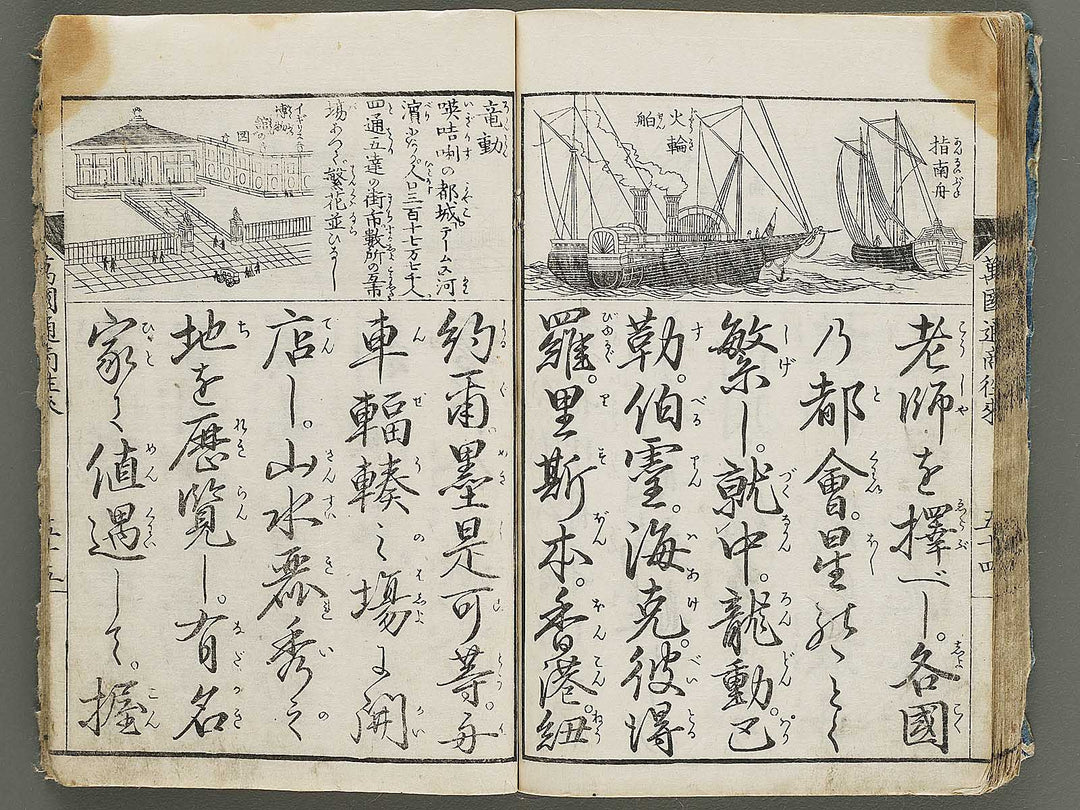 萬國通商往來
五十四
指南舟
火輪舶
老師を擇べし。各國
乃都會。星のごとく
繁し。就中。龍動。巴
勒。伯靈。海克。彼得
羅。里斯本。香港。紐
約爾。墨是可等。舟
車輻輳之塲に開
店し。山水麗秀之
地を歴覧し。有名
家に値遇して。握
竜動
暎咭唎の都城。テームス河
濱にあり人口三百十七万七千人
四通五達の街市数所の互市
場あつて繁花並びなし
イギリス
博物館の
図
萬國通商往來
五十五